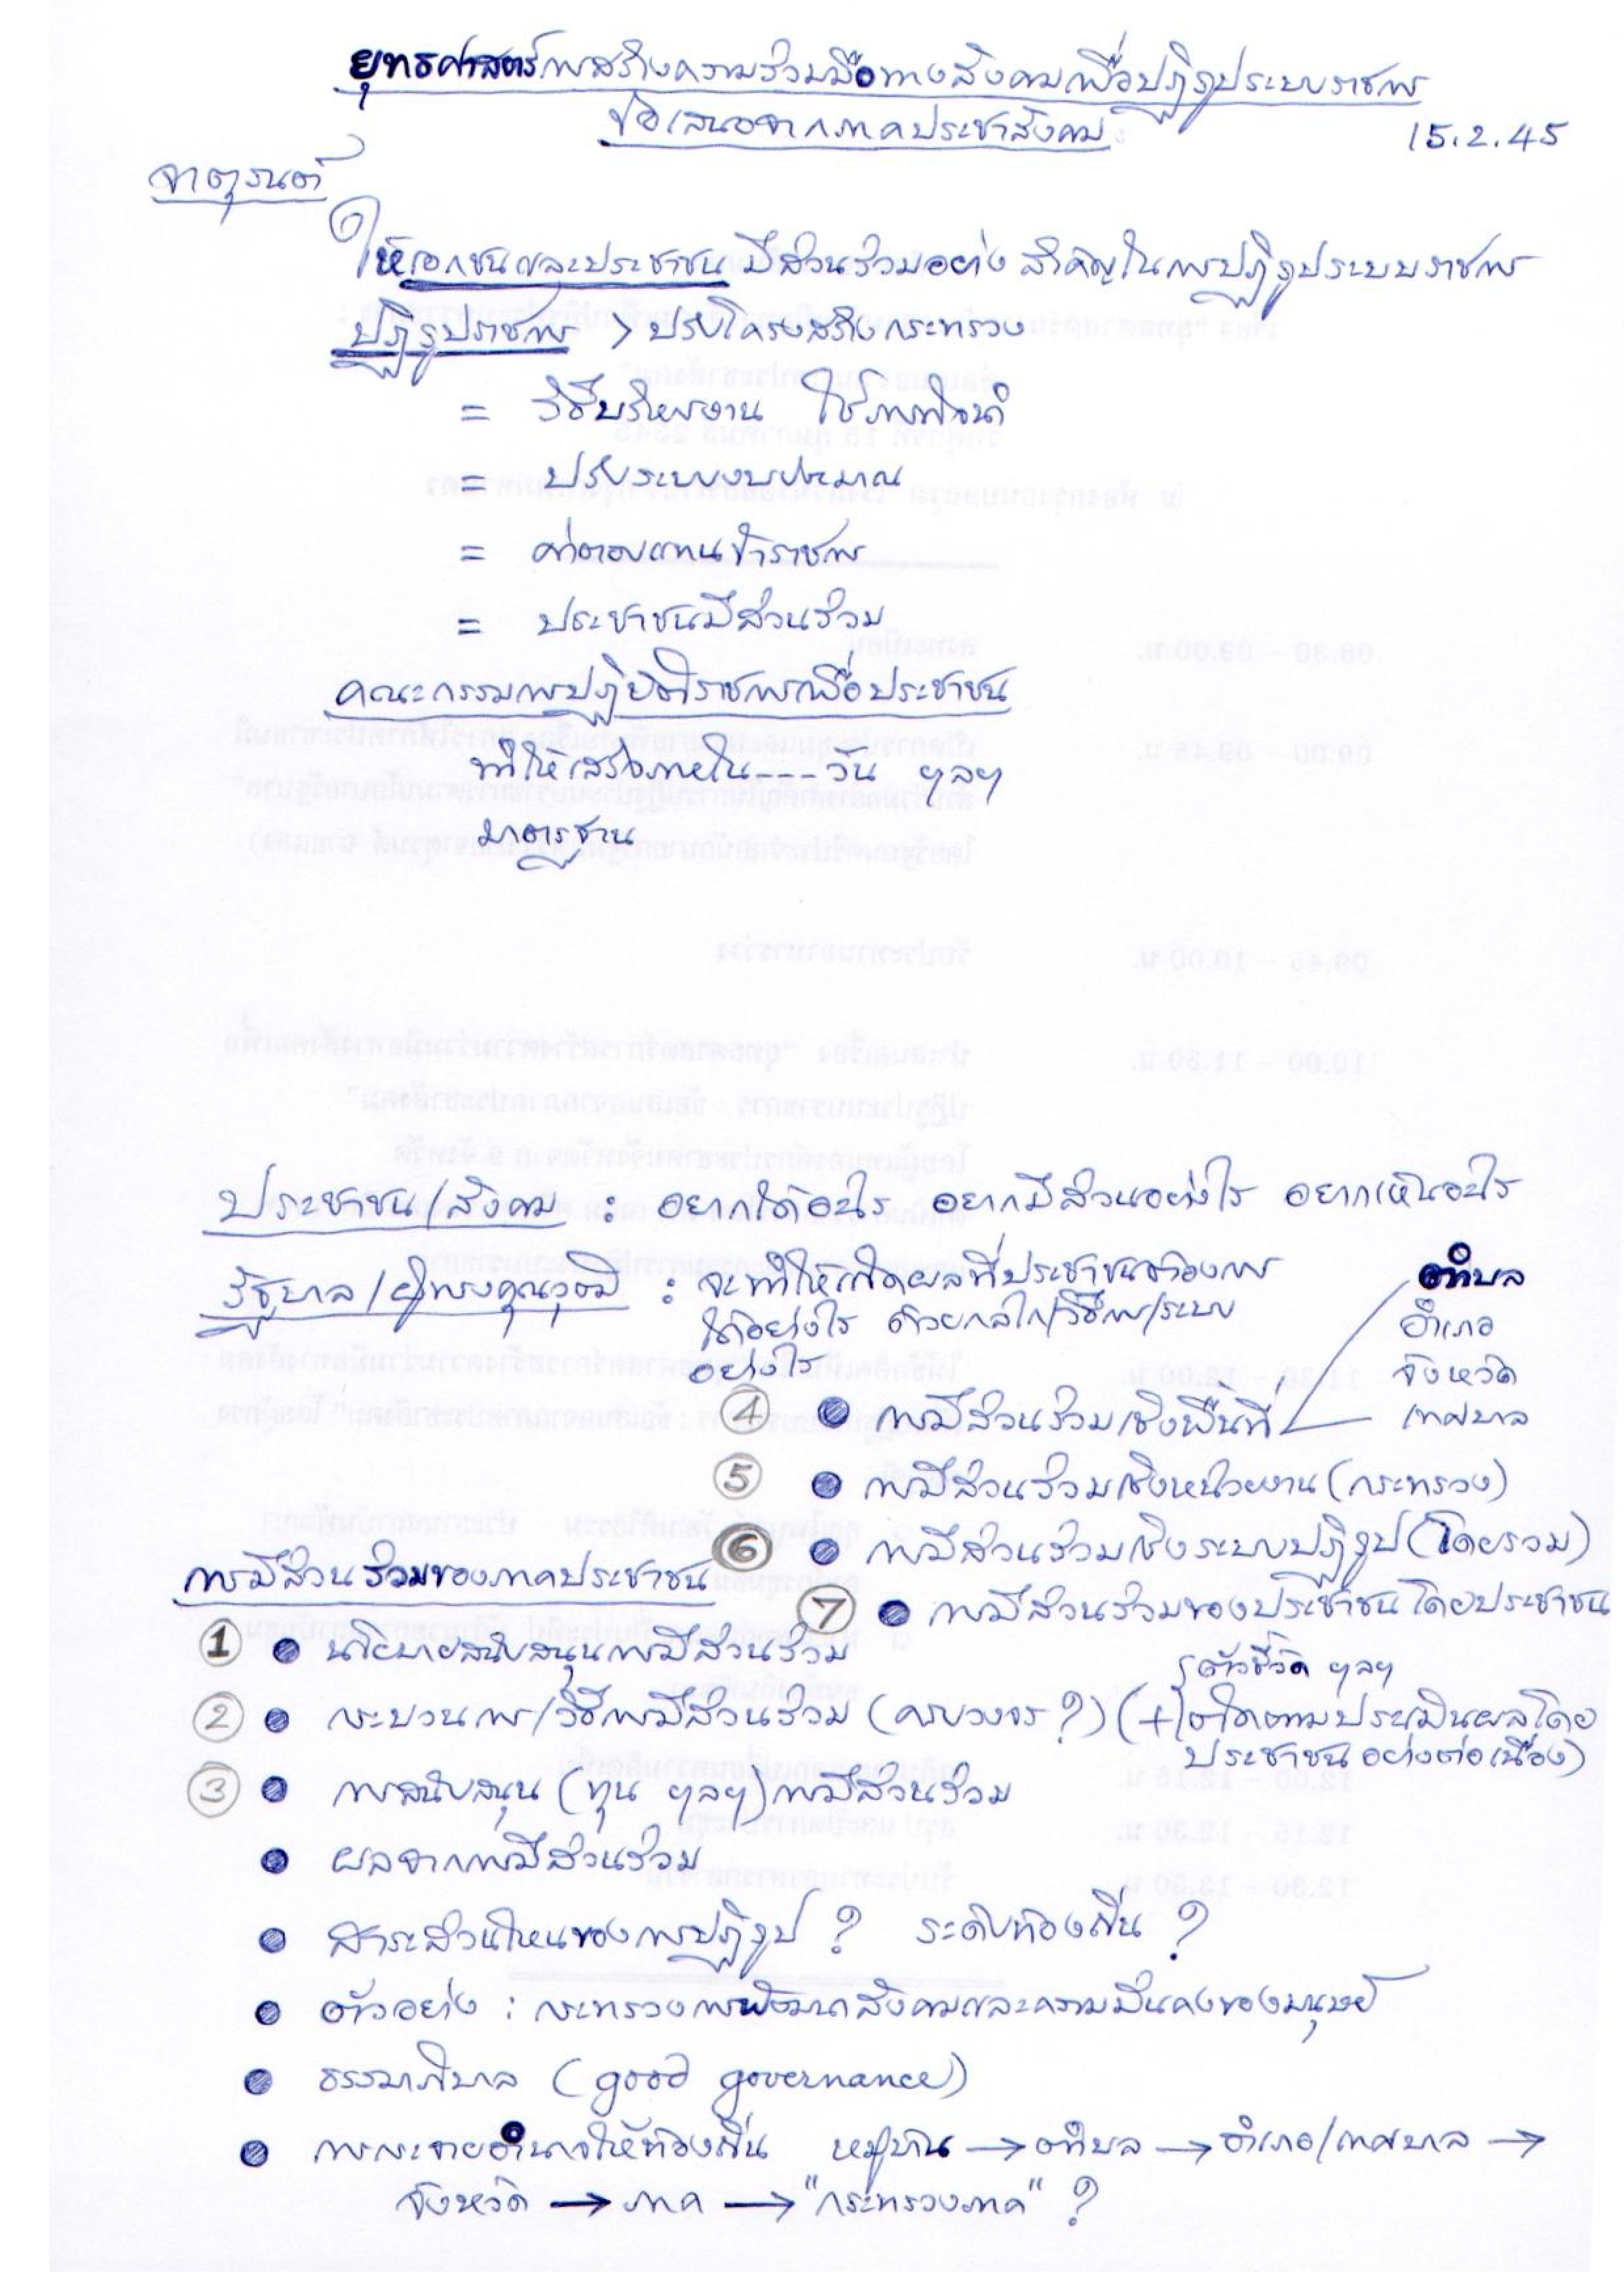 ยุทธศาสตร์การสร้างความร่วมมือทางสังคมเพื่อปฏิรูประบบราชการ
ข้อเสนอจากภาคประชาสังคม
15.2.45
จาตุรนต์
ให้เอกชนและประชาชนมีส่วนร่วมอย่างสำคัญในการปฏิรูประบบราชการ
ปฏิรูปราชการ > ปรับโครงสร้างกระทรวง
= วิธีบริหารงาน ใช้ภารกิจนำ
= ปรับระบบงบประมาณ
= ค่าตอบแทนข้าราชการ
= ประชาชนมีส่วนร่วม
คณะกรรมการปฏิบัติราชการเพื่อประชาชน
ทำให้เสร็จภายใน---วัน ฯลฯ
มาตรฐาน
ประชาชน/สังคม : อยากได้อะไร อยากมีส่วนอย่างไร อยากเห็นอะไร
รัฐบาล/ผู้ทรงคุณวุฒิ : จะทำให้เกิดผลที่ประชาชนต้องการ
ได้อย่างไร ด้วยกลไก/วิธีการ/ระบบ
อย่างไร
ตำบล
อำเภอ
จังหวัด
เทศบาล
4 ● การมีส่วนร่วมเชิงพื้นที่
5 ● การมีส่วนร่วมเชิงหน่วยงาน (กระทรวง)
6 ● การมีส่วนร่วมเชิงระบบปฏิรูป (โดยรวม)
7 ● การมีส่วนร่วมของประชาชนโดยประชาชน
การมีส่วนร่วมของภาคประชาชน
1 ● นโยบายสนับสนุนการมีส่วนร่วม
2 ● กระบวนการ/วิธีการมีส่วนร่วม (ครบวงจร?) (+ ตัวชี้วัด ฯลฯ
ติดตามประเมินผลโดย
ประชาชนอย่างต่อเนื่อง)
3 ● การสนับสนุน (ทุน ฯลฯ) การมีส่วนร่วม
● ผลจากการมีส่วนร่วม
● สาระส่วนไหนของการปฏิรูป ? ระดับท้องถิ่น ?
● ตัวอย่าง : กระทรวงการพัฒนาสังคมและความมั่นคงของมนุษย์
● ธรรมาภิบาล (good governance)
● การกระจายอำนาจให้ท้องถิ่น หมู่บ้าน → ตำบล → อำเภอ/เทศบาล →
จังหวัด → ภาค → "กระทรวงภาค" ?